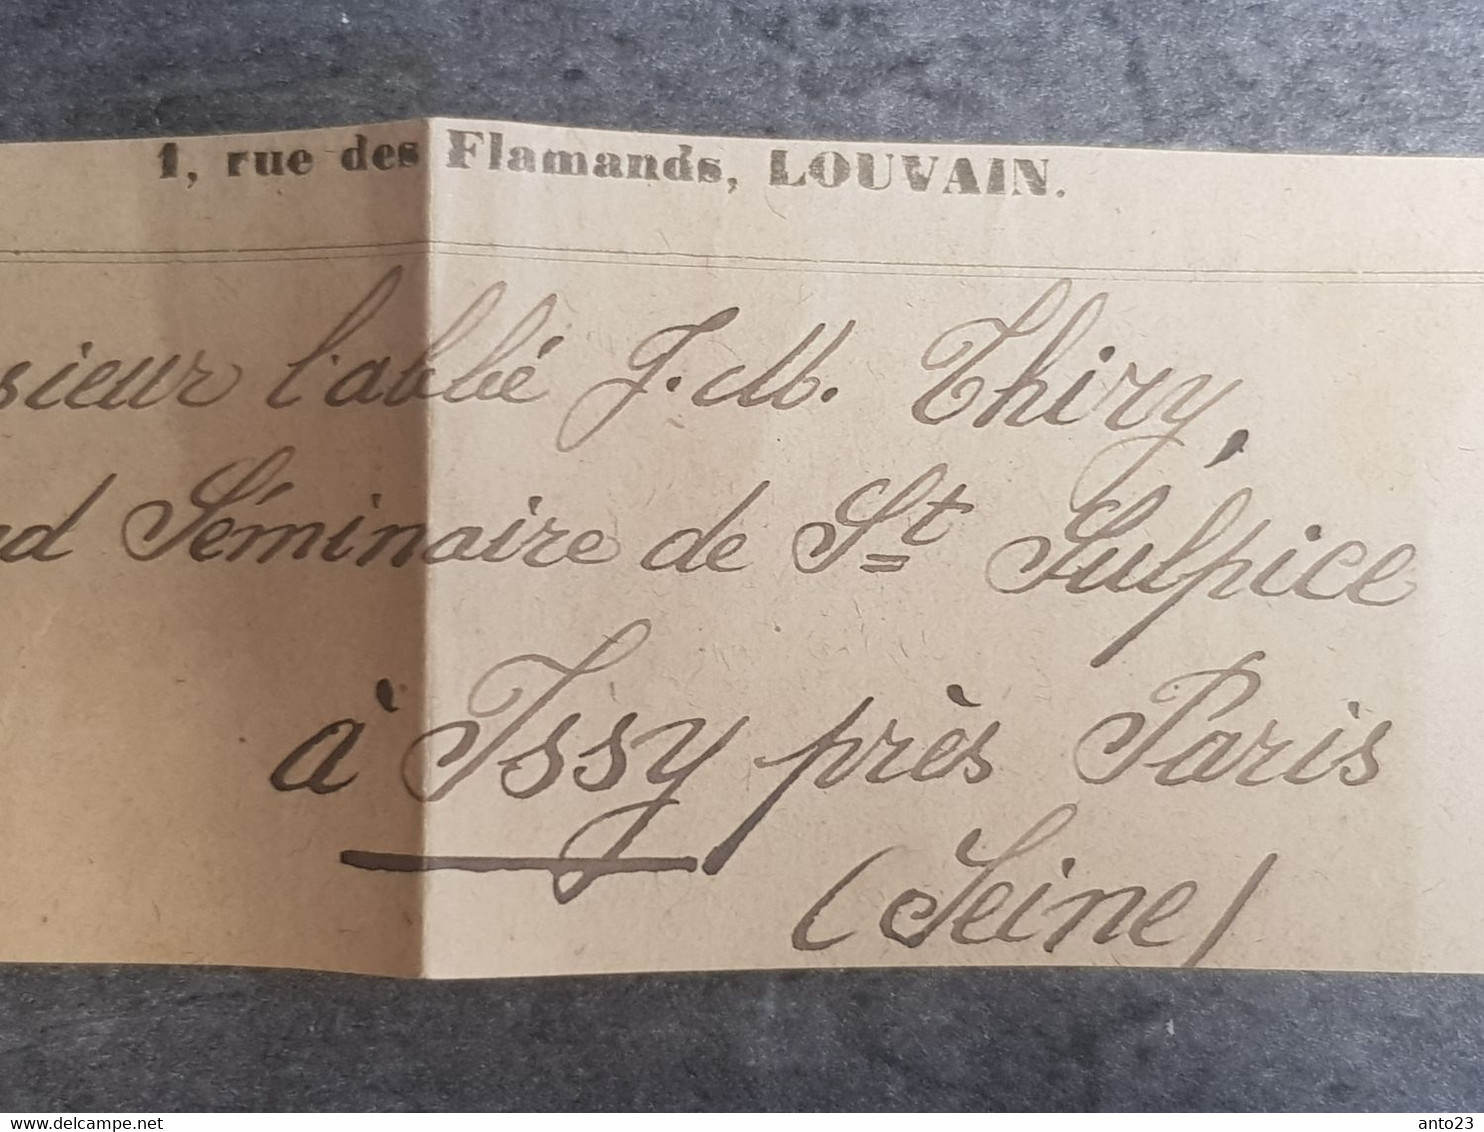 1, rue des Flamands, LOUVAIN.
sieur l'abbé J. M. Thiry,
d Séminaire de St Sulpice
à Issy près Paris
(Seine)
delcampe.net
anto23